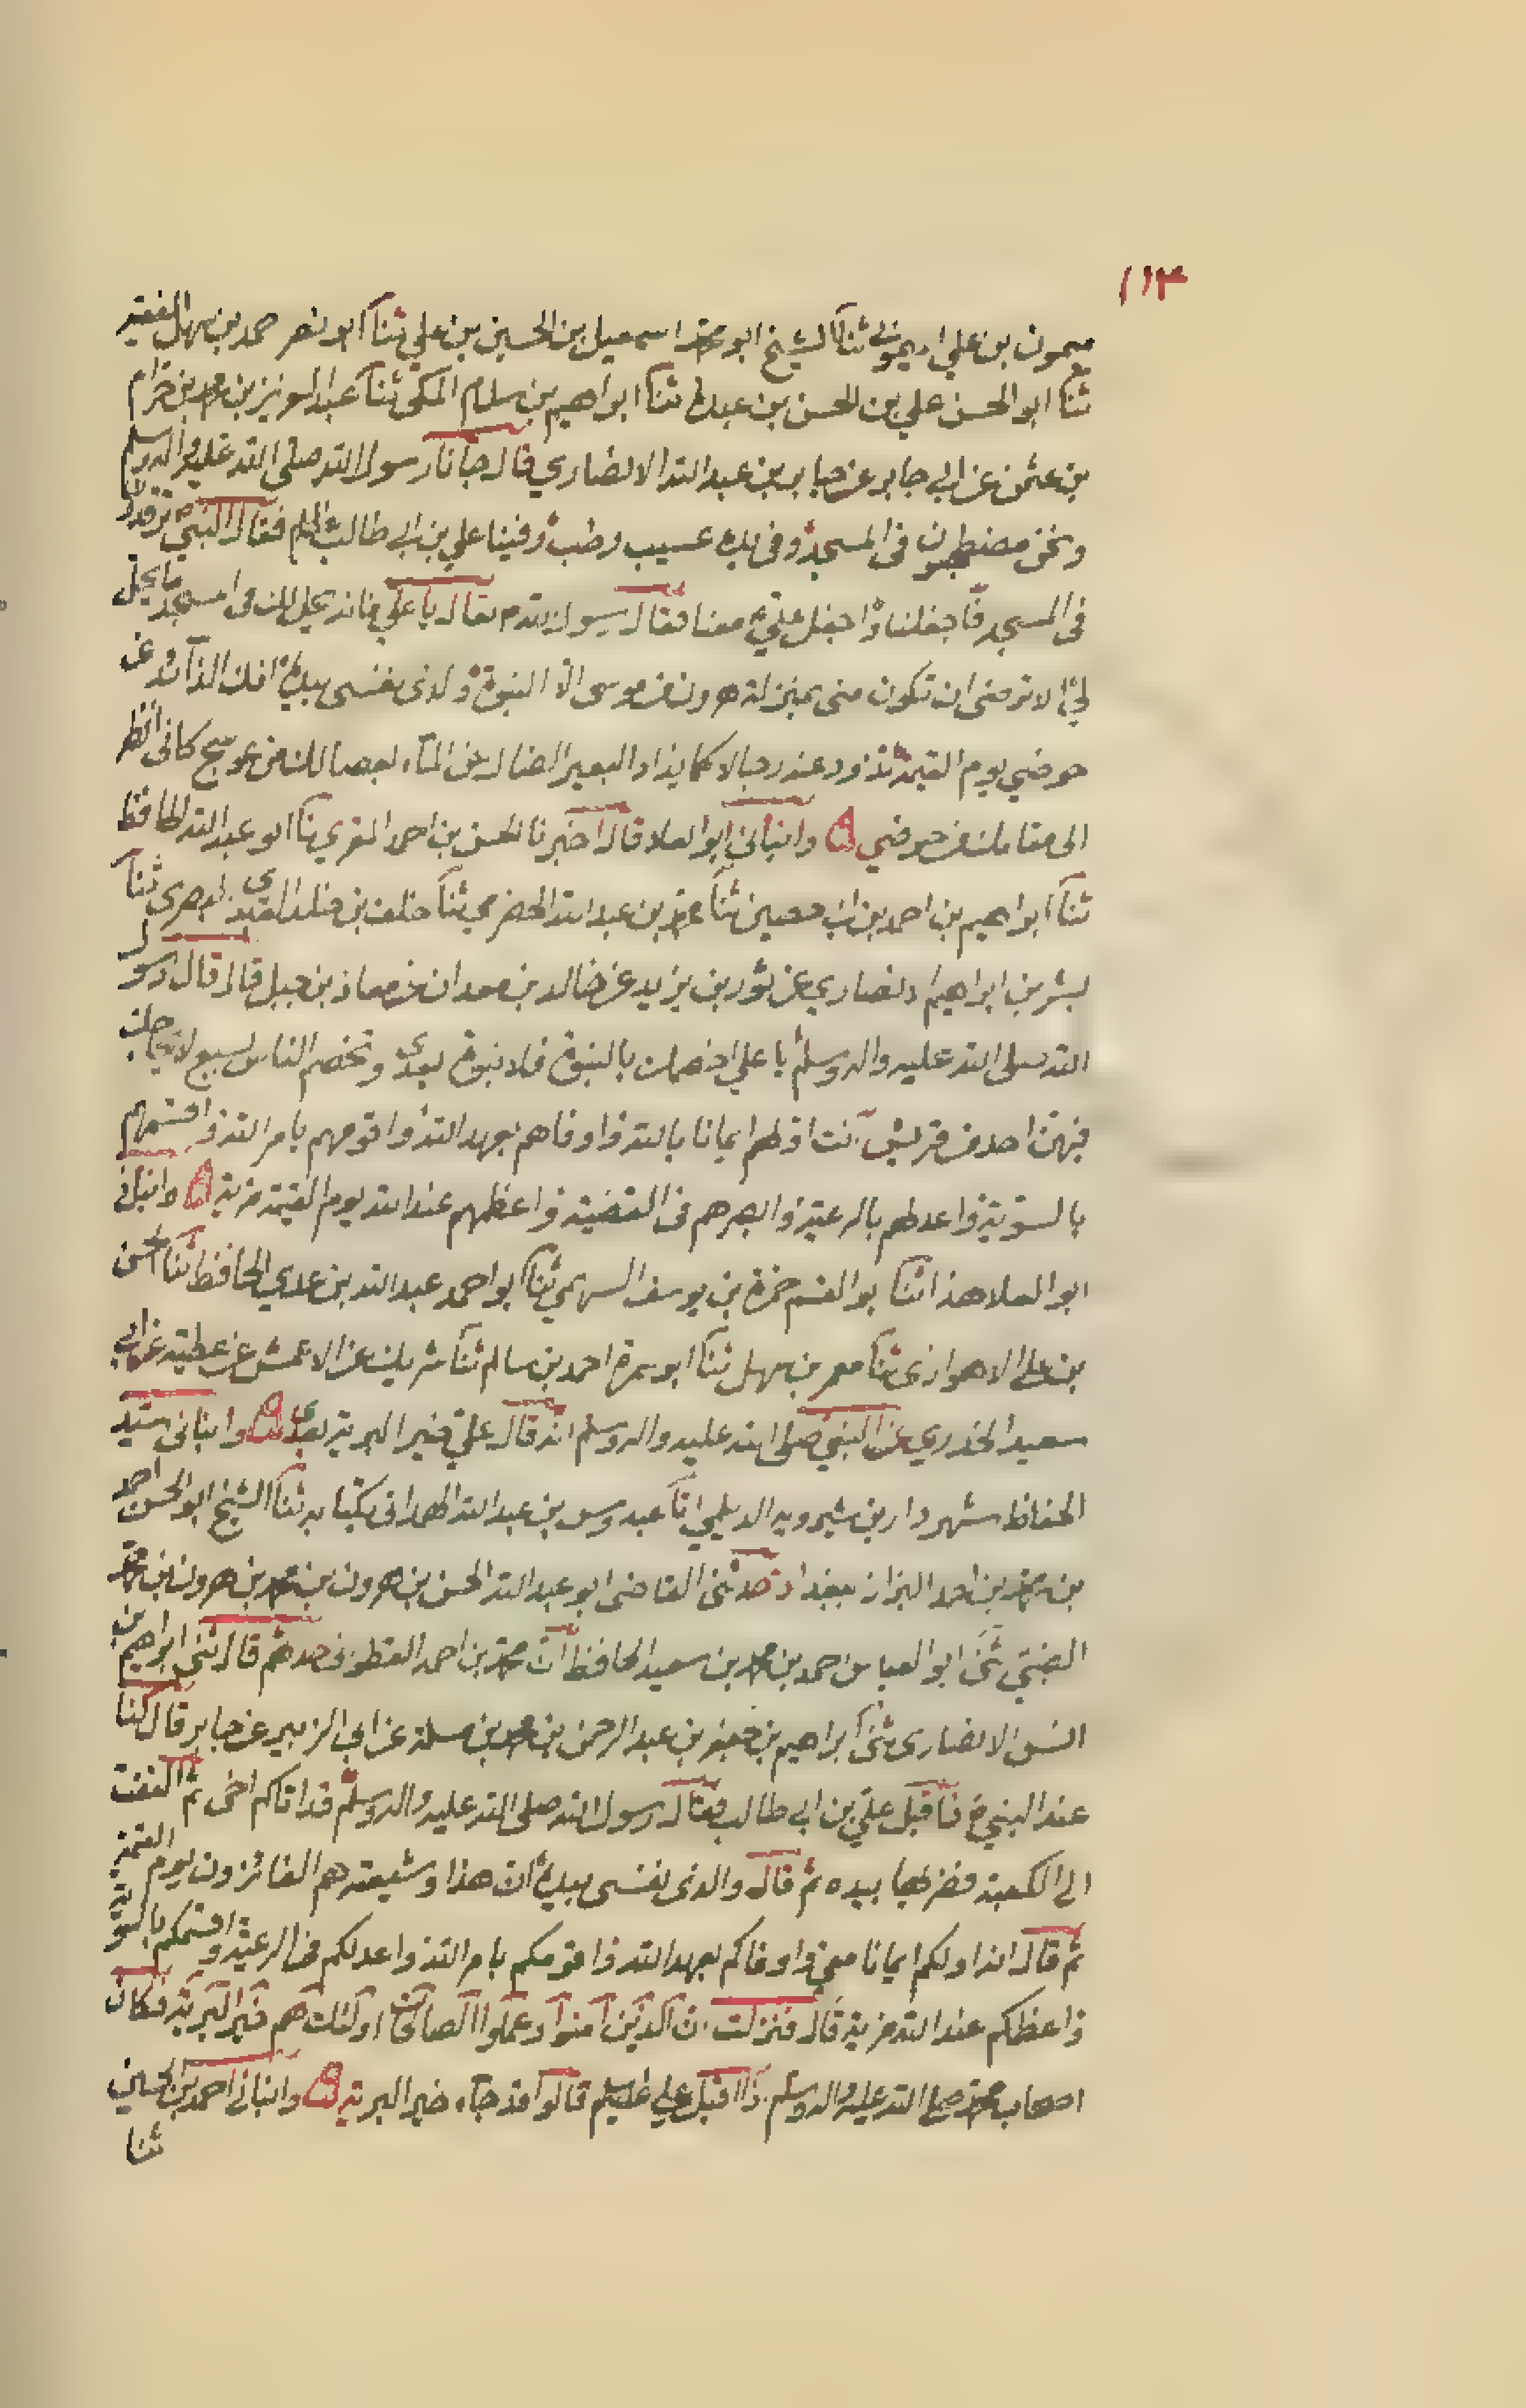 ١١٣
ميمون بن علي الميموني ثنا الشيخ ابو محمد اسمعيل بن الحسين بن علي ثنا ابو نصر حمد بن سهل الفقيه
ثنا ابو الحسن علي بن الحسن بن عبدة ثنا ابراهيم بن سلام المكي ثنا عبد العزيز بن محمد بن حزام
بن عثمن عن ابي جابر عن جابر بن عبد الله الانصاري قال جانا رسول الله صلى الله عليه واله وسلم
ونحن مضطجعون في المسجد وفي يده عسيب رطب وفينا علي بن ابي طالب فقال النبي ترقدون
في المسجد فاجفلنا واجفل علي معنا فقال رسول الله تعال يا علي فانه يحل لك في المسجد ما يحل
لي الا ترضى ان تكون مني بمنزلة هرون من موسى الا النبوة والذى نفسى بيده انك الذائد عن
حوضي يوم القيمة تذود عنه رجالا كما يذاد البعير الضال عن الماء بعصا لك من عوسج كانى انظر
الى مقامك من حوضي وانبانى ابو العلا قال اخبرنا الحسن بن احمد المقري ثنا ابو عبد الله الحافظ
ثنا ابراهيم بن احمد بن ابى حصين ثنا محمد بن عبد الله الحضرمي ثنا خلف بن خالد العبدي البصرى ثنا
بشر بن ابراهيم الانصاري عن ثور بن يزيد عن خالد بن معدان عن معاذ بن جبل قال قال رسول
الله صلى الله عليه واله وسلم يا علي اخصمك بالنبوة فلا نبوة بعدى وتخصم الناس بسبع لا يحاجك
فيهن احد من قريش انت اولهم ايمانا بالله واوفاهم بعهد الله واقومهم بامر الله واقسمهم
بالسوية واعدلهم بالرعية وابصرهم في القضية واعظمهم عند الله يوم القيمة مزية وانبانى
ابو العلا هذا انا ابو القسم حمزة بن يوسف السهمي ثنا ابو احمد عبد الله بن عدي الحافظ ثنا الحسن
بن علي الاهوازى ثنا معمر بن سهل ثنا ابو سمرة احمد بن سالم ثنا شريك عن الاعمش عن عطية عن ابي
سعيد الخدري عن النبي صلى الله عليه واله وسلم انه قال علي خير البرية بعدى وانبانى سيد
الحفاظ شهردار بن شيرويه الديلمي انا عبدوس بن عبد الله الهمدانى كتابه ثنا الشيخ ابو الحسن احمد
بن محمد بن احمد البزاز ببغداد حدثنى القاضى ابو عبد الله الحسن بن هرون بن محمد بن هرون بن محمد
الضبي ثنى ابو العباس احمد بن محمد بن سعيد الحافظ ان محمد بن احمد القطوانى حدثهم قال ثنى ابراهيم بن
انس الانصارى ثنى ابراهيم بن جعفر بن عبد الرحمن بن محمد بن مسلمة عن ابي الزبير عن جابر قال كنا
عند النبي فاقبل علي بن ابي طالب فقال رسول الله صلى الله عليه واله وسلم قد اتاكم اخى ثم التفت
الى الكعبة فضربها بيده ثم قال والذى نفسى بيده ان هذا وشيعته هم الفائزون يوم القيمة
ثم قال انه اولكم ايمانا معي واوفاكم بعهد الله واقومكم بامر الله واعدلكم في الرعية واقسمكم بالسوية
واعظمكم عند الله مزية قال فنزلت ان الذين آمنوا وعملوا الصالحات اولئك هم خير البرية فكان
اصحاب محمد صلى الله عليه واله وسلم اذا اقبل علي قالوا قد جاء خير البرية وانبانى احمد بن الحسين
ثنا